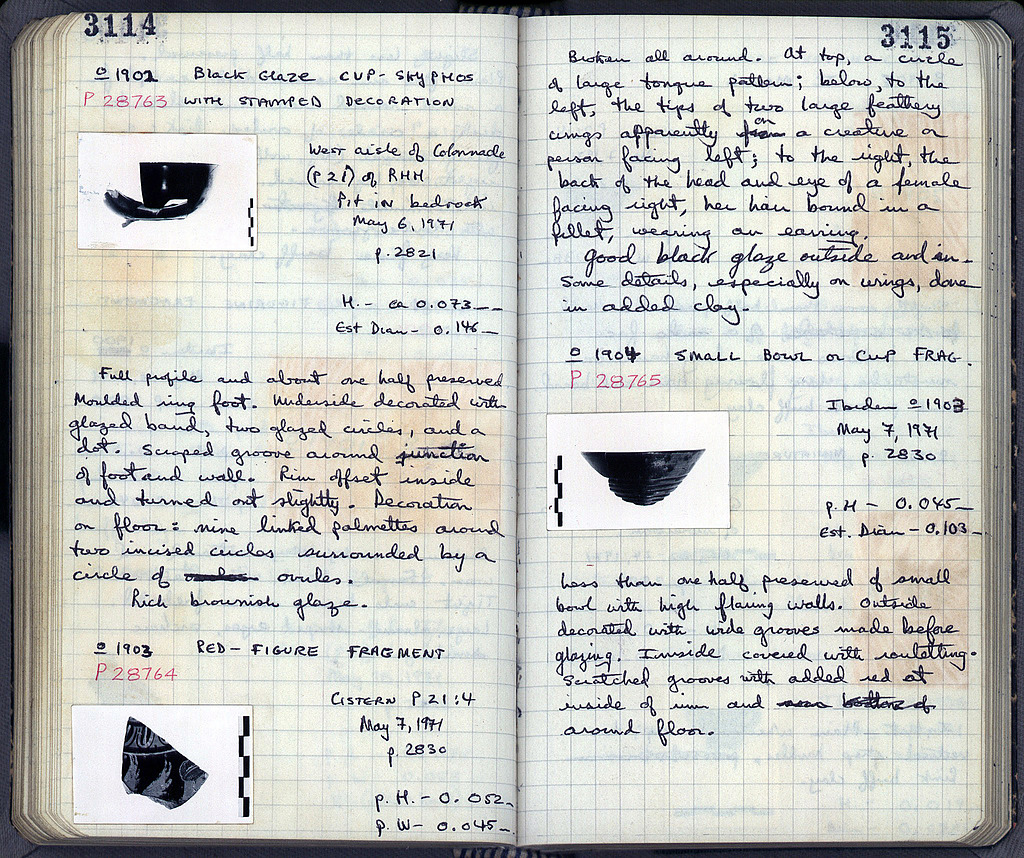 3114
o 1902 Black Glaze CUP-SKYPHOS
P 28763 WITH STAMPED DECORATION
West aisle of Colonnade
(P 21) of RHH
Pit in bedrock
May 6, 1971
p. 2821
H. - ca 0.073
Est Diam - 0.146
Full profile and about one half preserved
Moulded ring foot. Underside decorated with
glazed band, two glazed circles, and a
dot. Scraped groove around junction
of foot and wall. Rim offset inside
and turned out slightly. Decoration
on floor: nine linked palmettes around
two incised circles surrounded by a
circle of ovules.
Rich brownish glaze.
o 1903 RED-FIGURE FRAGMENT
P 28764
CISTERN P 21:4
May 7, 1971
p. 2830
p. H. - 0.052
p. W - 0.045
3115
Broken all around. At top, a circle
of large tongue pattern; below, to the
left, the tips of two large feathery
wings apparently from on a creature or
person facing left; to the right, the
back of the head and eye of a female
facing right, her hair bound in a
fillet, wearing an earring.
Good black glaze outside and in.
Some details, especially on wings, done
in added clay.
o 1904 SMALL BOWL or CUP FRAG.
P 28765
Ibidem o 1903
May 7, 1971
p. 2830
p. H - 0.045
Est. Diam - 0.103
Less than one half preserved of small
bowl with high flaring walls. Outside
decorated with wide grooves made before
glazing. Inside covered with rouletting.
Scratched grooves with added red at
inside of rim and bottom of
around floor.